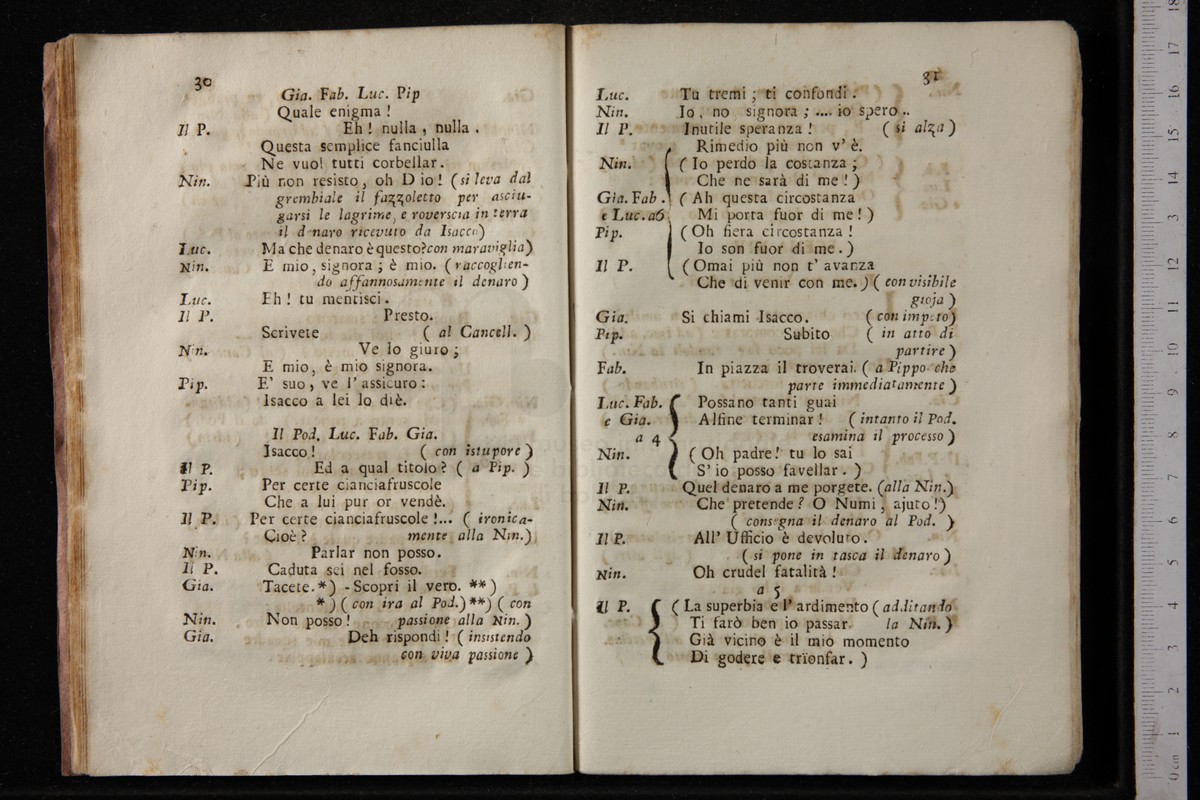 30
Gia. Fab. Luc. Pip
Quale enigma !
Il P. Eh ! nulla , nulla .
Questa semplice fanciulla
Ne vuol tutti corbellar.
Nin. Più non resisto, oh Dio! (si leva dal
grembiale il fazzoletto per asciu-
garsi le lagrime, e roverscia in terra
il danaro ricevuto da Isacco)
Luc. Ma che denaro è questo?con maraviglia)
Nin. E mio, signora ; è mio. (raccoglien-
do affannosamente il denaro )
Luc. Eh ! tu mentisci.
Il P. Presto.
Scrivete ( al Cancell. )
Nin. Ve lo giuro ;
E mio, è mio signora.
Pip. E' suo, ve l'assicuro :
Isacco a lei lo diè.
Il Pod. Luc. Fab. Gia.
Isacco ! ( con istupore )
Il P. Ed a qual titolo ? ( a Pip. )
Pip. Per certe cianciafruscole
Che a lui pur or vendè.
Il P. Per certe cianciafruscole !... ( ironica-
Cioè ? mente alla Nin.)
Nin. Parlar non posso.
Il P. Caduta sei nel fosso.
Gia. Tacete. *) - Scopri il vero. **)
*) ( con ira al Pod.) **) ( con
Nin. Non posso ! passione alla Nin. )
Gia. Deh rispondi ! ( insistendo
con viva passione )
31
Luc. Tu tremi ; ti confondi .
Nin. Io, no signora ; .... io spero ..
Il P. Inutile speranza ! ( si alza )
Rimedio più non v' è.
Nin. ( Io perdo la costanza ;
Che ne sarà di me ! )
Gia. Fab. ( Ah questa circostanza
e Luc. a6 Mi porta fuor di me ! )
Pip. ( Oh fiera circostanza !
Io son fuor di me . )
Il P. ( Omai più non t' avanza
Che di venir con me. ) ( con visibile
gioja )
Gia. Si chiami Isacco. ( con impeto )
Pip. Subito ( in atto di
partire )
Fab. In piazza il troverai. ( a Pippo che
parte immediatamente )
Luc. Fab. Possano tanti guai
e Gia. Alfine terminar ! ( intanto il Pod.
a 4 esamina il processo )
Nin. ( Oh padre! tu lo sai
S' io posso favellar . )
Il P. Quel denaro a me porgete. (alla Nin.)
Nin. Che pretende ? O Numi, ajuto !)
( consegna il denaro al Pod. )
Il P. All' Ufficio è devoluto.
( si pone in tasca il denaro )
Nin. Oh crudel fatalità !
a 5
Il P. ( La superbia e l' ardimento ( additando
Ti farò ben io passar. la Nin. )
Già vicino è il mio momento
Di godere e trïonfar. )